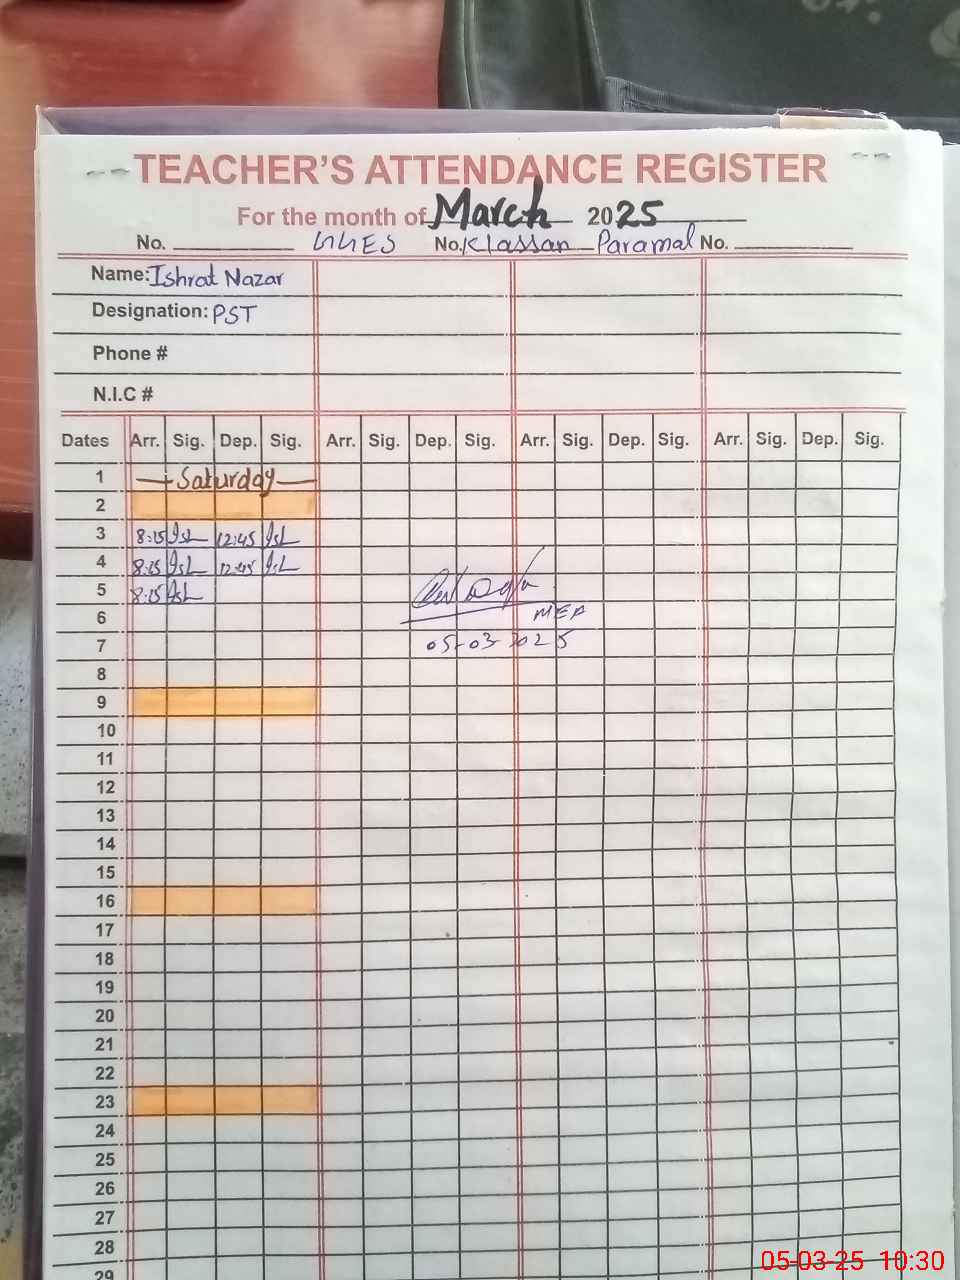 TEACHER'S ATTENDANCE REGISTER
For the month of March 2025
No. GGES No. Klassan Paramal No.
Name: Ishrat Nazar
Designation: PST
Phone #
N.I.C #
Dates Arr. Sig. Dep. Sig. Arr. Sig. Dep. Sig. Arr. Sig. Dep. Sig. Arr. Sig. Dep. Sig.
1 Saturday
2
3 8:15 Ish 12:45 Ish
4 8:15 Ish 12:45 Ish
5 8:15 Ish
6 MEA
7 05-03-2025
8
9
10
11
12
13
14
15
16
17
18
19
20
21
22
23
24
25
26
27
28
29
05-03-25 10:30